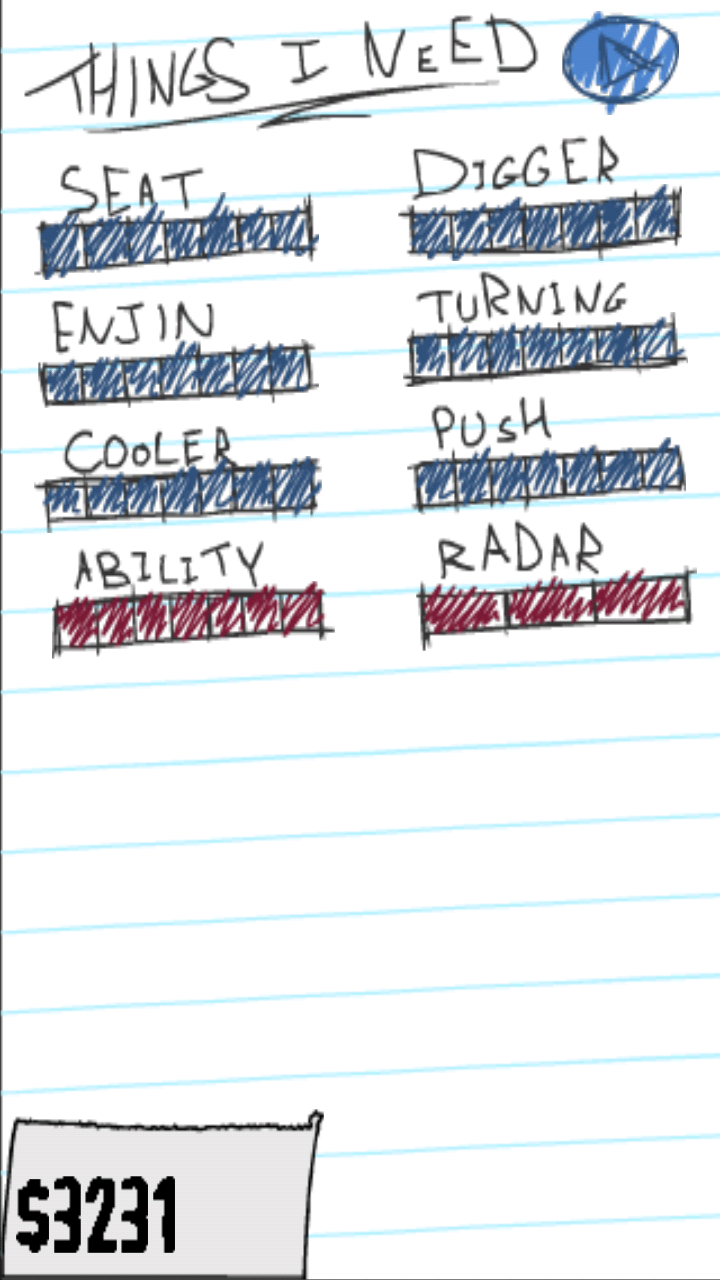 THINGS I NEED
SEAT DIGGER
ENJIN TURNING
COOLER PUSH
ABILITY RADAR
$3231